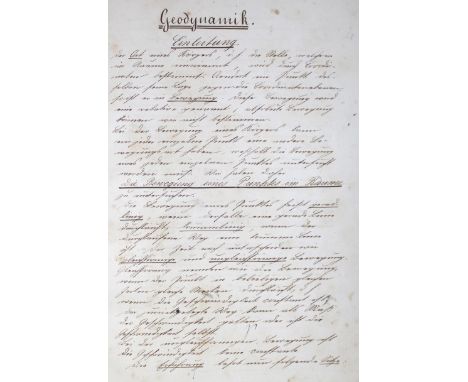 Geodynamik.
Einleitung
der Ort eines Körpers, d. i. die Stelle, welchen
im Raume einnimmt, wird durch Coordi-
naten bestimmt. Ändert ein Punkt der-
selben seine Lage gegen die Coordinatenaxen,
so ist er in Bewegung, diese Bewegung wird
eine relative genannt, absolute Bewegung
können wir nicht bestimmen.
Bei der Bewegung eines Körpers kann
ein jeder einzelne Punkt eine andere Be-
wegungsart haben, weshalb die Bewegung
eines jeden einzelnen Punktes untersucht
werden muß. Wir haben daher
die Bewegung eines Punktes im Raume
zu untersuchen.
die Bewegung eines Punktes heißt grad-
linig, wenn derselbe eine gerade Linie
durchläuft, krummlinig, wenn der
Weg eine krumme Linie
ist. Der Zeit nach unterscheiden wir
gleichförmige und ungleichförmige Bewegung.
Gleichförmig nennen wir die Bewegung,
wenn der Punkt in beliebigen gleichen
Zeiten gleiche Strecken durchläuft d. i.
wenn die Geschwindigkeit constant ist
der zurückgelegte Weg kann als Maß
der Geschwindigkeit gelten, wie ist die
Geschwindigkeit selbst.
Bei der ungleichförmigen Bewegung ist
die Geschwindigkeit keine constante
die Erfahrung lehrt nun folgende Sätze